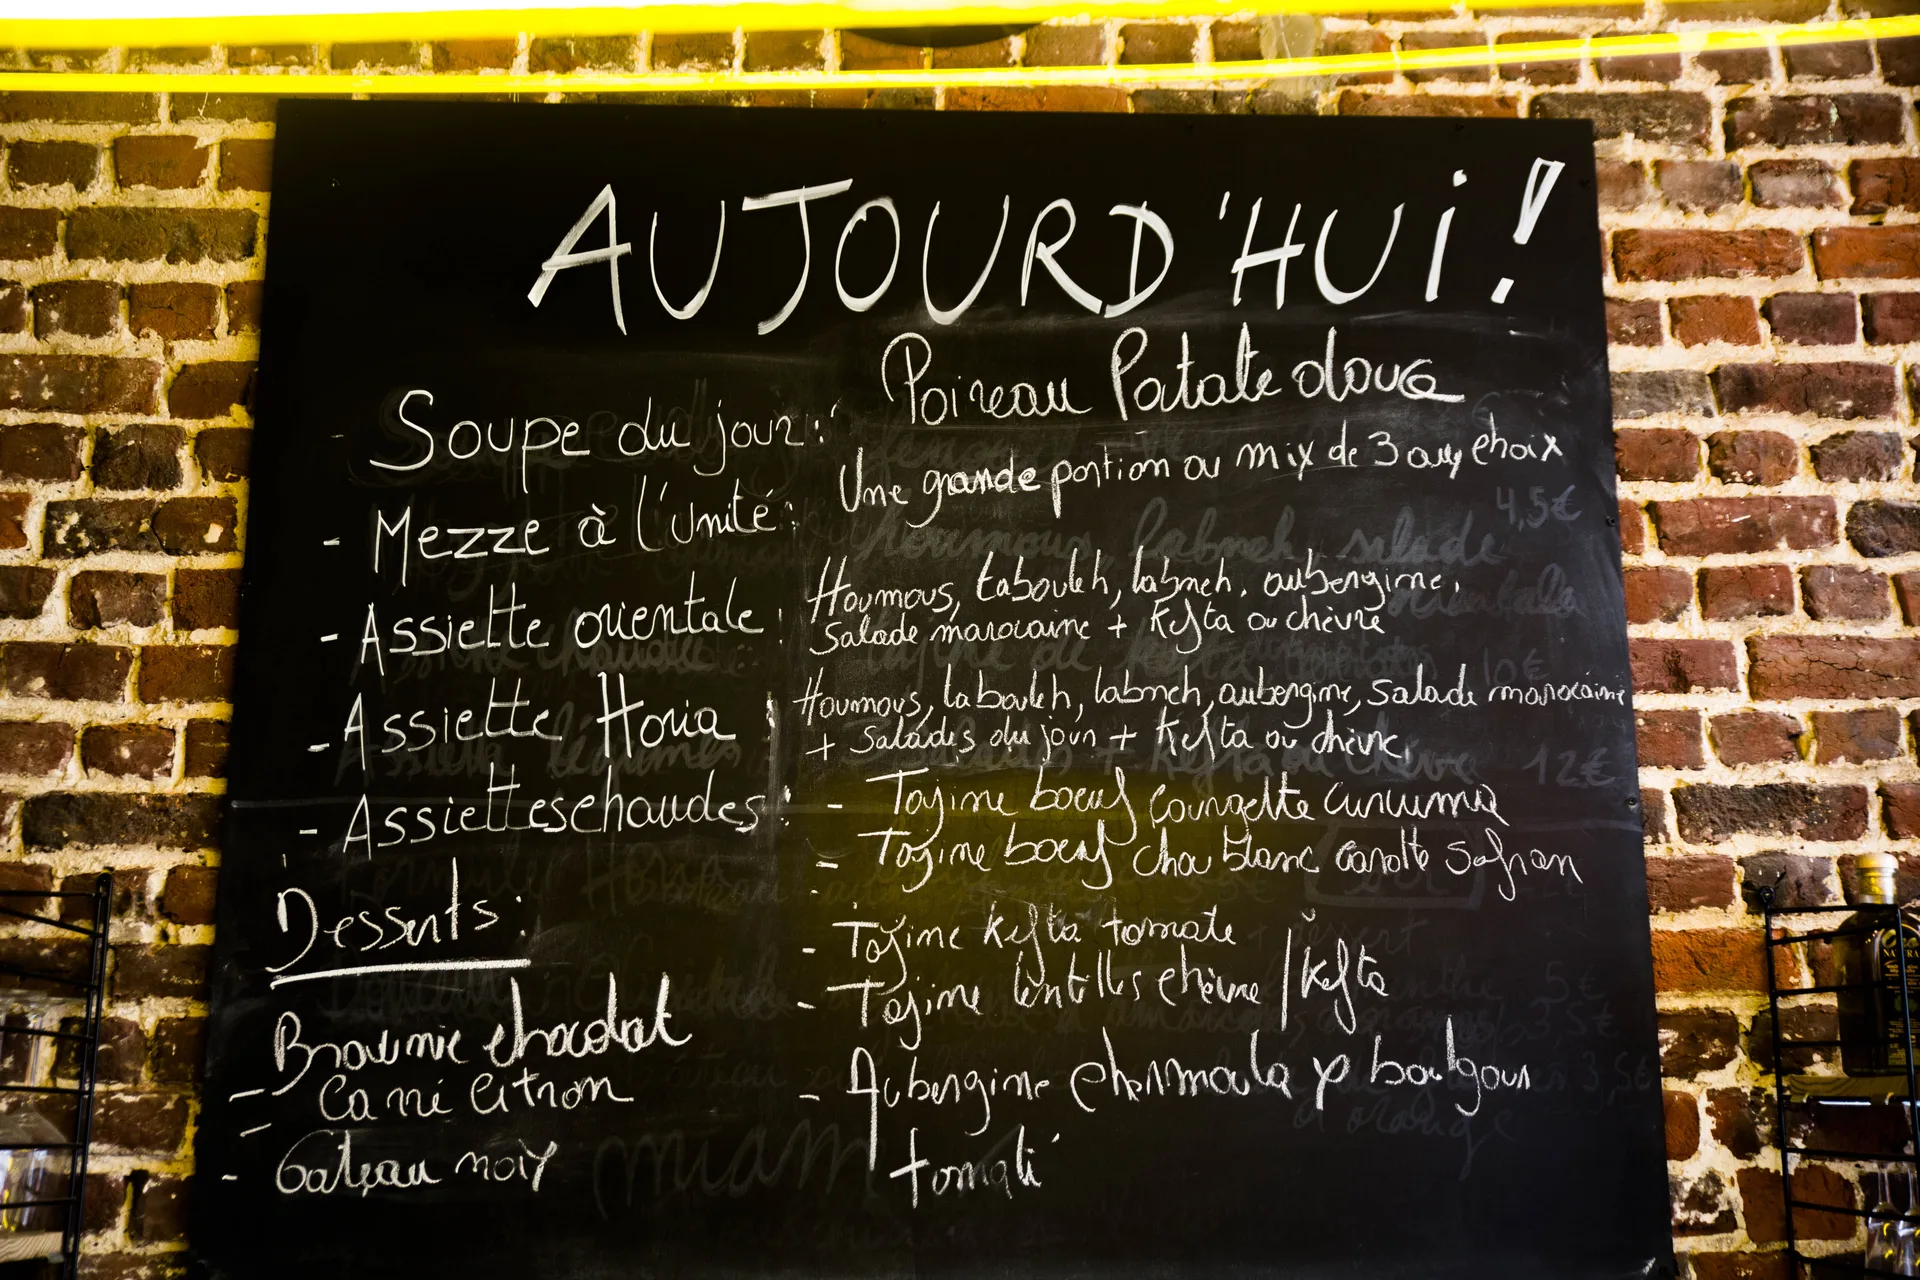 AUJOURD'HUI!
- Soupe du jour: Poireau Patate douce
- Mezze à l'unité: Une grande portion ou mix de 3 au choix
4,5€
- Assiette orientale: Houmous, tabouleh, labneh, aubergine,
Salade marocaine + Kefta ou chèvre
10€
- Assiette Horia: Houmous, tabouleh, labneh, aubergine, Salade marocaine
+ Salades du jour + Kefta ou chèvre,
12€
- Assiettes chaudes: - Tajine boeuf courgette curcuma
- Tajine boeuf chou blanc carotte safran
- Tajine kefta tomate
- Tajine lentilles chèvre / Kefta
- Aubergine chermoula & boulgour
tomate
Desserts:
Brownie chocolat
- Carré Citron
- Gateau noix
miam